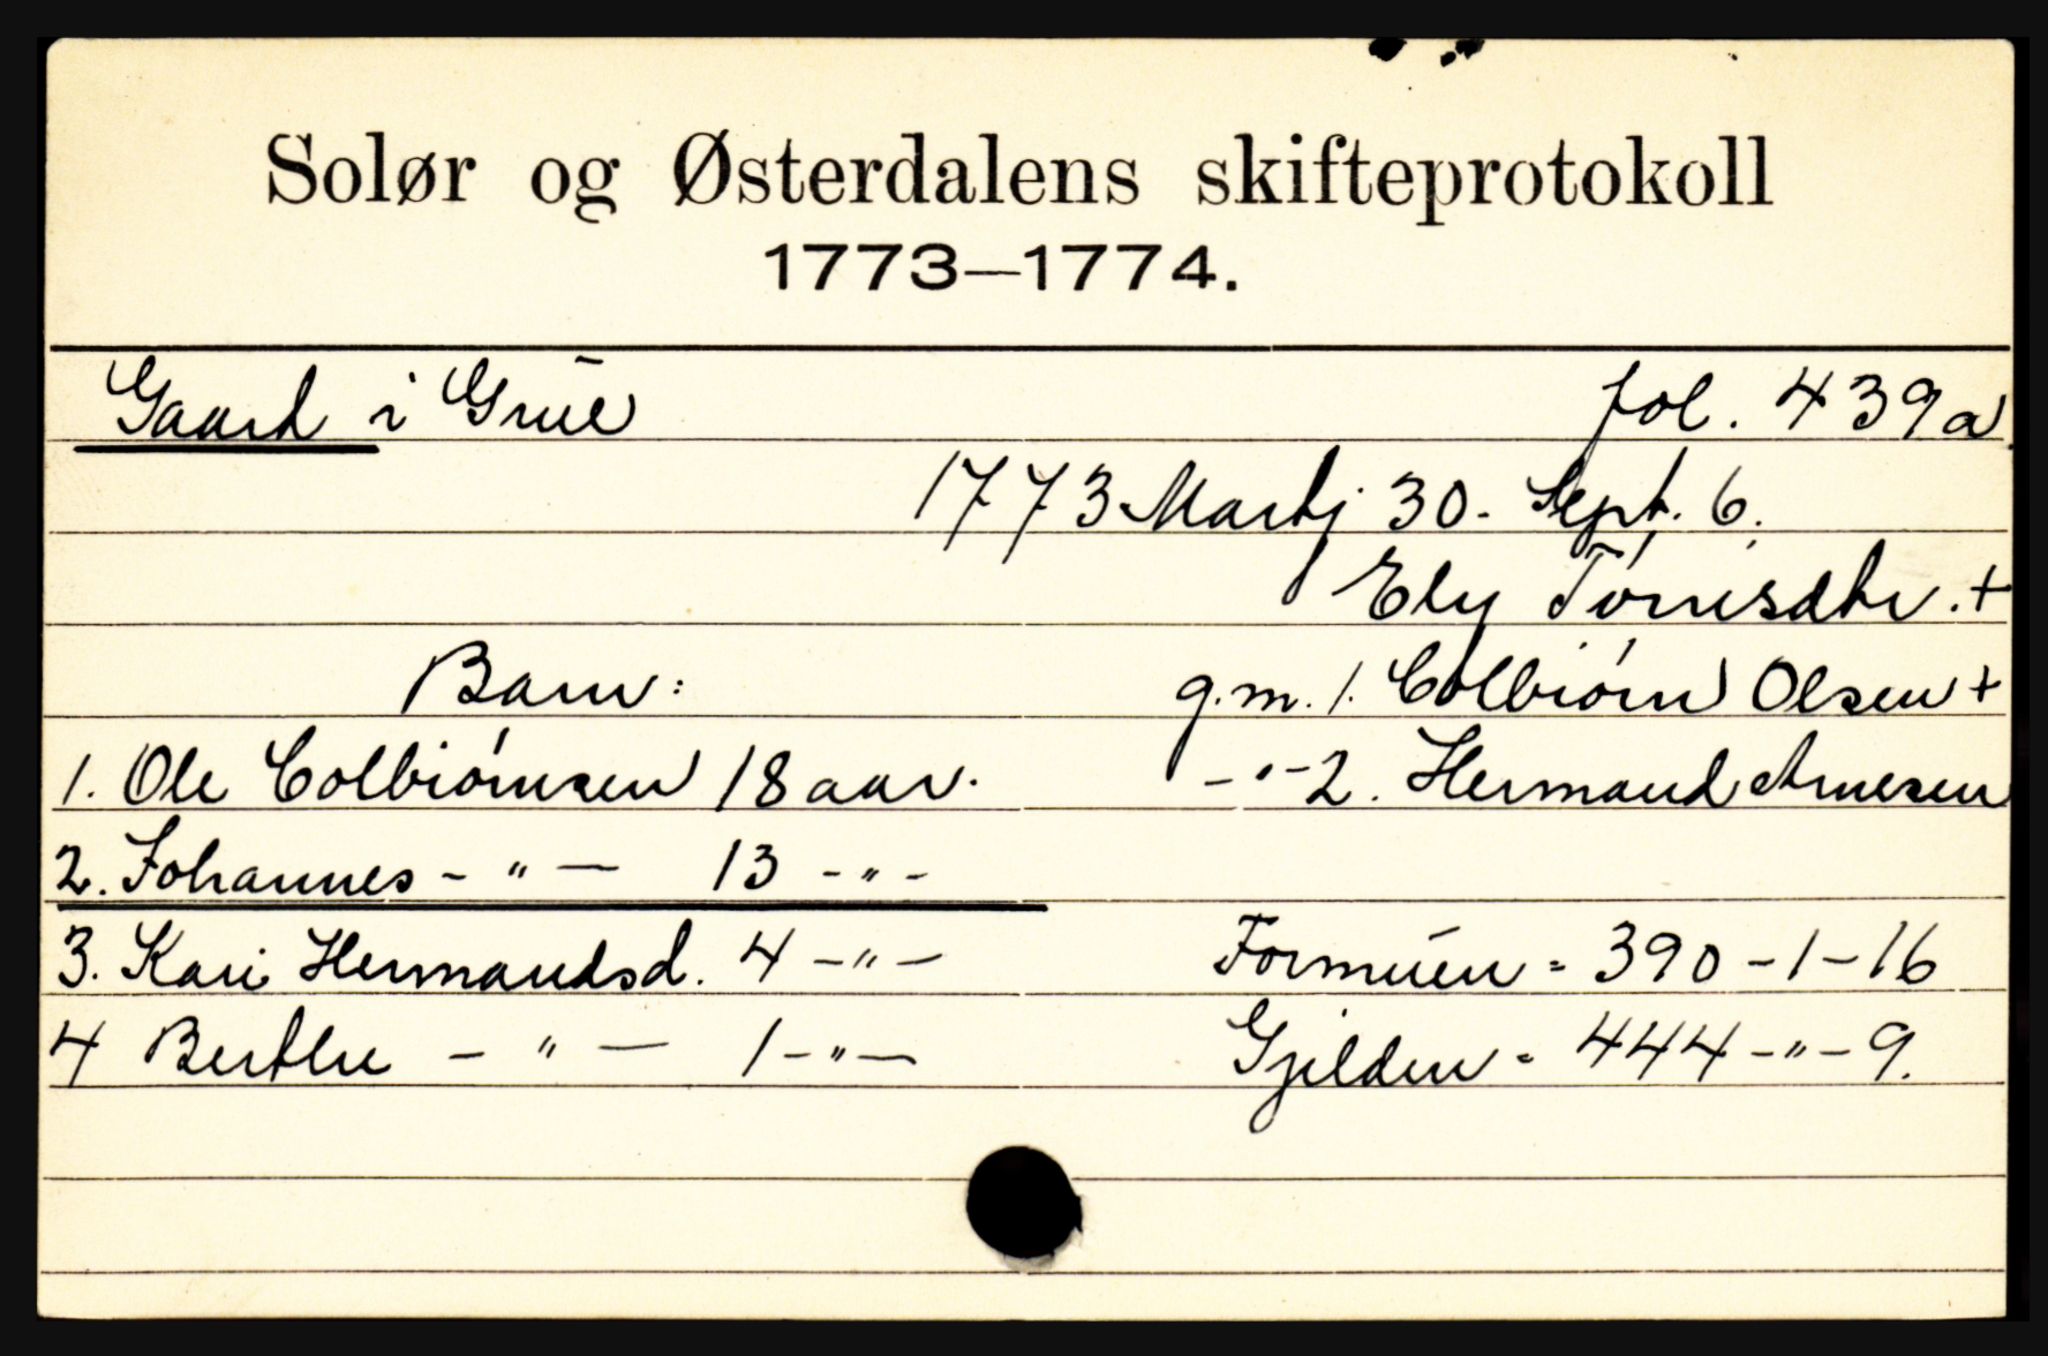 Solør og Østerdalens skifteprotokoll
1773—1774.
Gaard i Grue fol. 439a.
1773 Martj 30 - Sept. 6.
Ely Tórrisdtr. +
Barn: g.m. 1. Colbiórn Olsen +
1. Ole Colbiórnsen 18 aar. - " - 2. Hermand Arnesen
2. Johannes - " - 13 - " -
3. Kari Hermandsd. 4 - " - Formuen = 390 - 1 - 16
4 Berthe - " - 1 - " - Gjelden = 444 - " - 9.